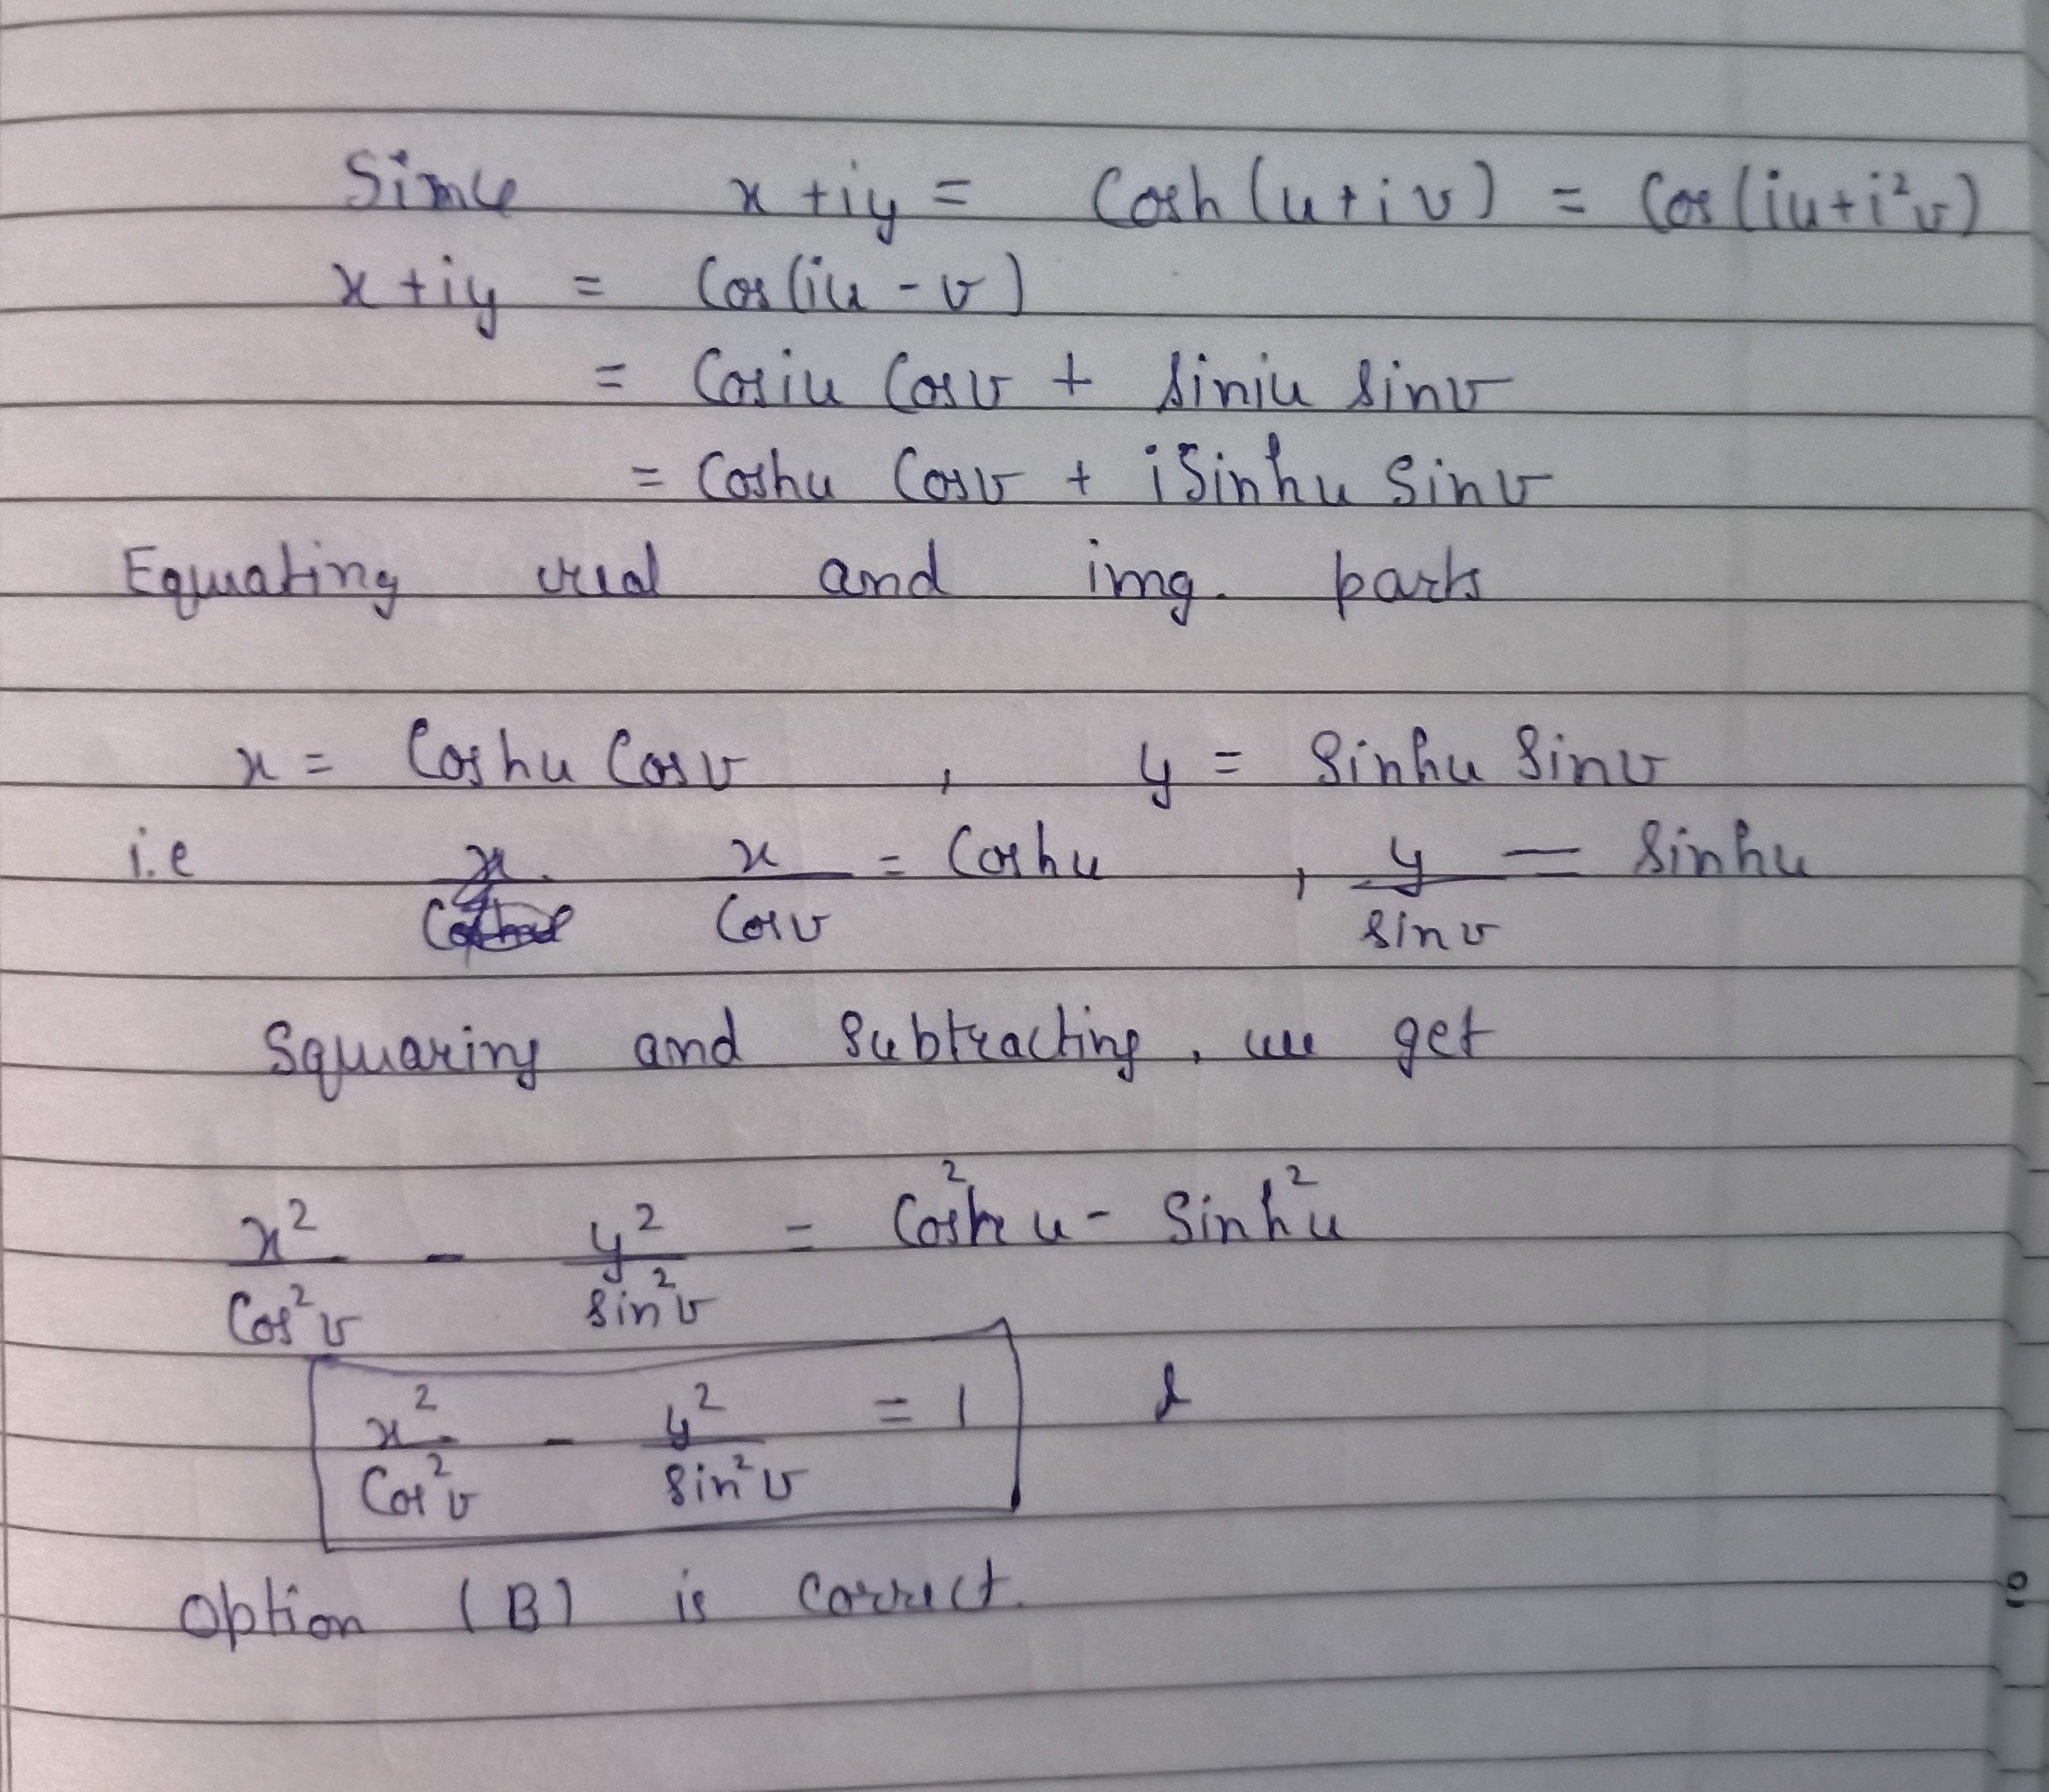 Since x + iy = Cosh (u + i v) = Cos (iu + i²v)
x + iy = Cos (iu - v)
= Cosiu Cosv + siniu sinv
= Coshu Cosv + i Sinhu Sinv
Equating real and img. parts
x = Coshu Cosv , y = Sinhu Sinv
i.e x/Cosv = Coshu , y/sinv = Sinhu
Squaring and Subtracting, we get
x²/Cos²v - y²/sin²v = Cosh²u - Sinh²u
x²/Cos²v - y²/sin²v = 1
Option (B) is correct.